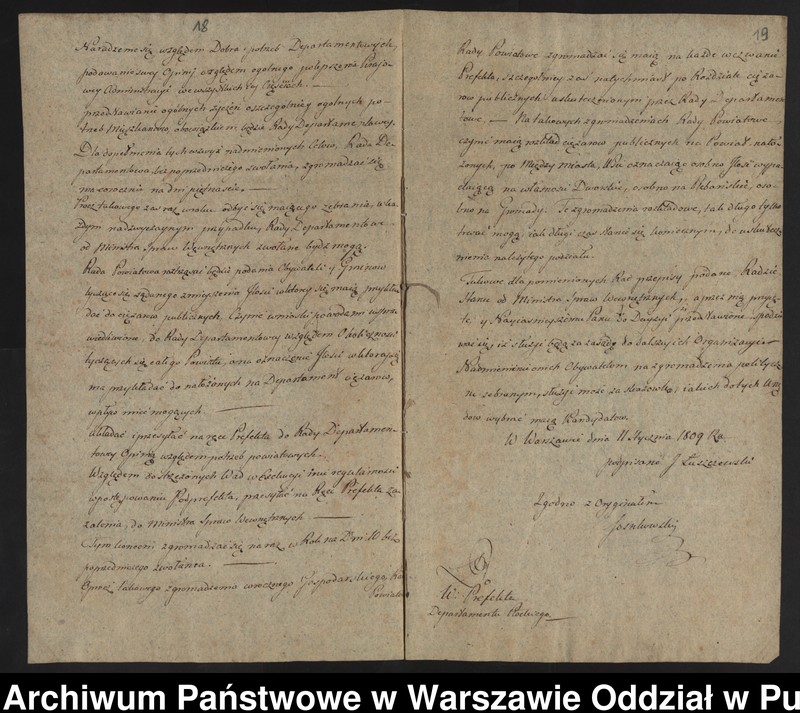 18
Naradzenie się względem Dobra i potrzeb Departamentowych,
podawanie swey Opinij względem ogolnego polepszenia Kraio-
wey Administracyi we wszystkich Iey Częściach. —
przedstawianie ogolnych życzeń a szczegolniey ogolnych po-
trzeb Mieszkańców obowiązkiem będzie Rady Departamentowey.
Dla dopełnienia tych wszyst nadmienionych Celow, Rada De-
partamentowa bez poprzedniczego zwołania, zgromadzać się
ma corocznie na dni piętnaście. —
Procz takowego zaś raz w roku odbyć się maiącego zebrania, w każ-
dym nadzwyczaynym przypadku, Rady Departamentowe
od Ministra Spraw Wewnętrznych zwołane bydź mogą.
Rada Powiatowa roztrząsać będzie podania Obywateli y Gminow
tyczące się żądanego zmnieyszenia Ilości w którey się maią przykła-
dać do ciężarow publicznych. Czynić wnioski powodem uspra-
wiedliwione do Rady Departamentowey względem Okoliczności
tyczących się całego Powiatu, a na oznaczenie Ilości w którey się
ma przykładać do nałożonych na Departament ciężarow,
wpływ mieć mogących —
układać i przesyłać na ręce Prefekta do Rady Departamen-
towey Opinią względem potrzeb powiatowych.
Względem dostrzeżonych Wad w Exekucyi i nieregularności
w postępowaniu Podprefekta, przesyłać na Ręce Prefekta za-
żalenia, do Ministra Spraw Wewnętrznych —
Tym koncem zgromadzać się na raz w Rok na Dni 10 bez
poprzedniczego zwołania. —
Oprócz takowego zgromadzenia corocznego Gospodarskiego,
Powiatow
19
Rady Powiatowe zgromadzać się maią na każde wezwanie
Prefekta, szczegolniey zaś natychmiast po Rozdziale cięża-
row publicznych uskutecznionym przez Rady Departamen-
towe. — Na takowych zgromadzeniach Rady Powiatowe
czynić maią rozkład ciężarow publicznych na Powiat nało-
żonych, po Między Miasta, Wsie oznaczaiąc osobno Ilość wypa-
daiącą na własności Dworskie, osobno na Plebańskie, oso-
bno na Gromady. Te zgromadzenia rozkładowe, tak długo tylko
trwać mogą, iak długi czas stanie się koniecznym, do uskutecz-
nienia należytego podziału.
Takowe dla pomienionych Rad przepisy podane Radzie
Stanu od Ministra Spraw Wewnętrznych, a przez nią przyię-
te y Nayiaśnieyszemu Panu do Decyzyi przedstawione spodzie-
wać się, iż służyć będą za zasadę do dalszych Organizacyi.
Nadmienienie onich Obywatelom na zgromadzenia polityczne
zebranym, służyć może za skazowkę, iakich do tych Urzę-
dow wybrać maią Kandydatow
W Warszawie dnia 11 Stycznia 1809 Ro.
podpisano J Łuszczewski
Zgodno z Oryginałem
W. Prefekta
Departamentu Płockiego
Archiwum Państwowe w Warszawie Oddział w Pu